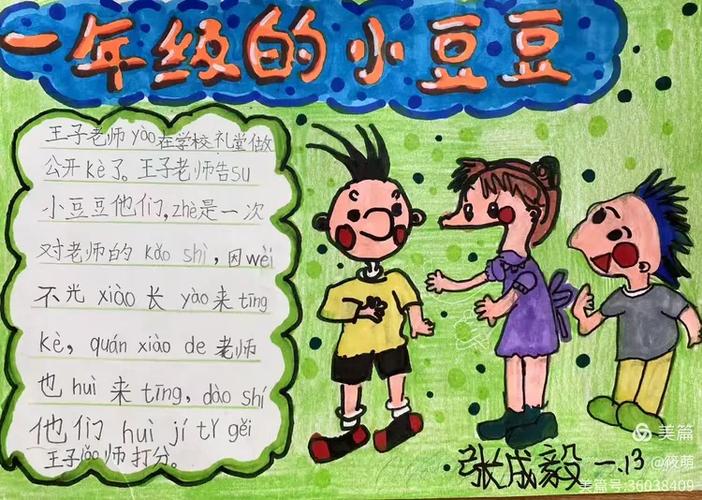 一年级的小豆豆
王子老师yào在学校礼堂做
公开kè了。王子老师告su
小豆豆他们,zhè是一次
对老师的 kǎo shì，因wèi
不光 xiào 长 yào 来 tīng
kè，quán xiào de 老师
也 huì 来 tīng，dào shí
他们 huì jí tǐ gěi
王子lǎo师打分。
张成毅 一.13
美篇
@筱萌
美篇号:36038409